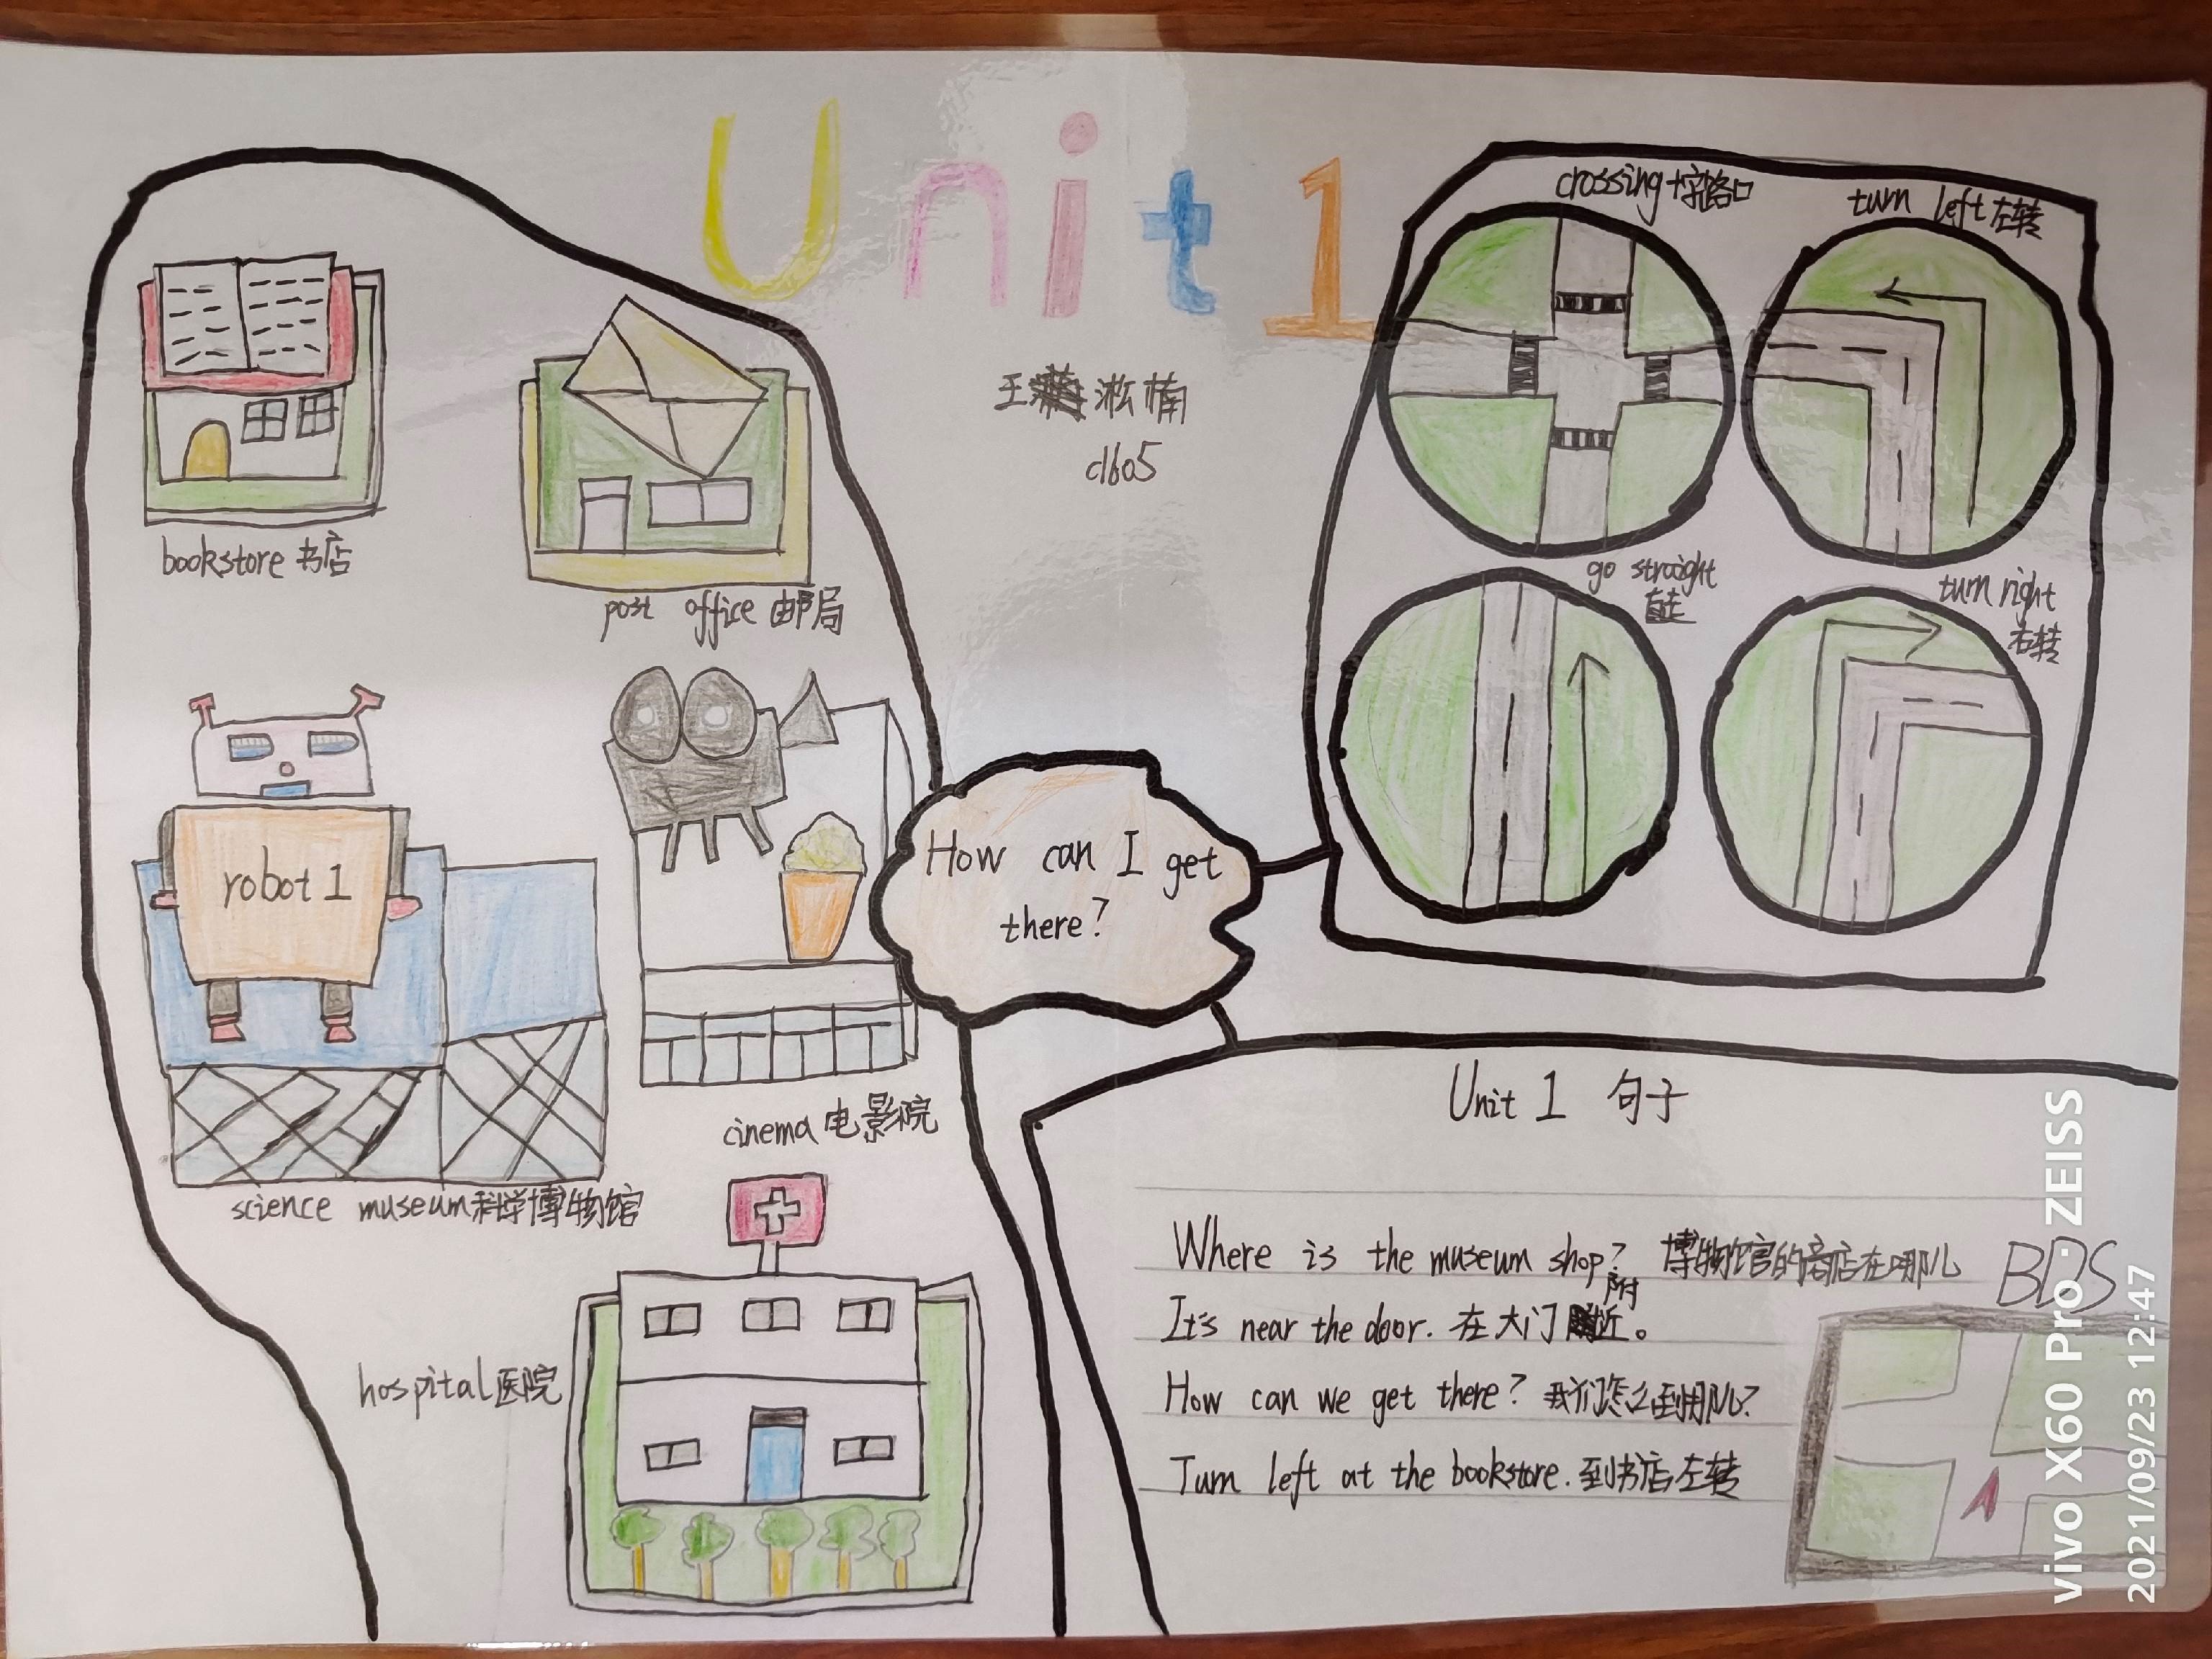 Unit 1
王淞楠
c1605
bookstore 书店
post office 邮局
robot 1
science museum 科学博物馆
cinema 电影院
hospital 医院
How can I get
there?
crossing 十字路口
turn left 左转
go straight
直走
turn right
右转
Unit 1 句子
Where is the museum shop? 博物馆的商店在哪儿
It's near the door. 在大门附近。
How can we get there? 我们怎么到那儿?
Turn left at the bookstore. 到书店左转
BDS
vivo X60 Pro · ZEISS
2021/09/23 12:47